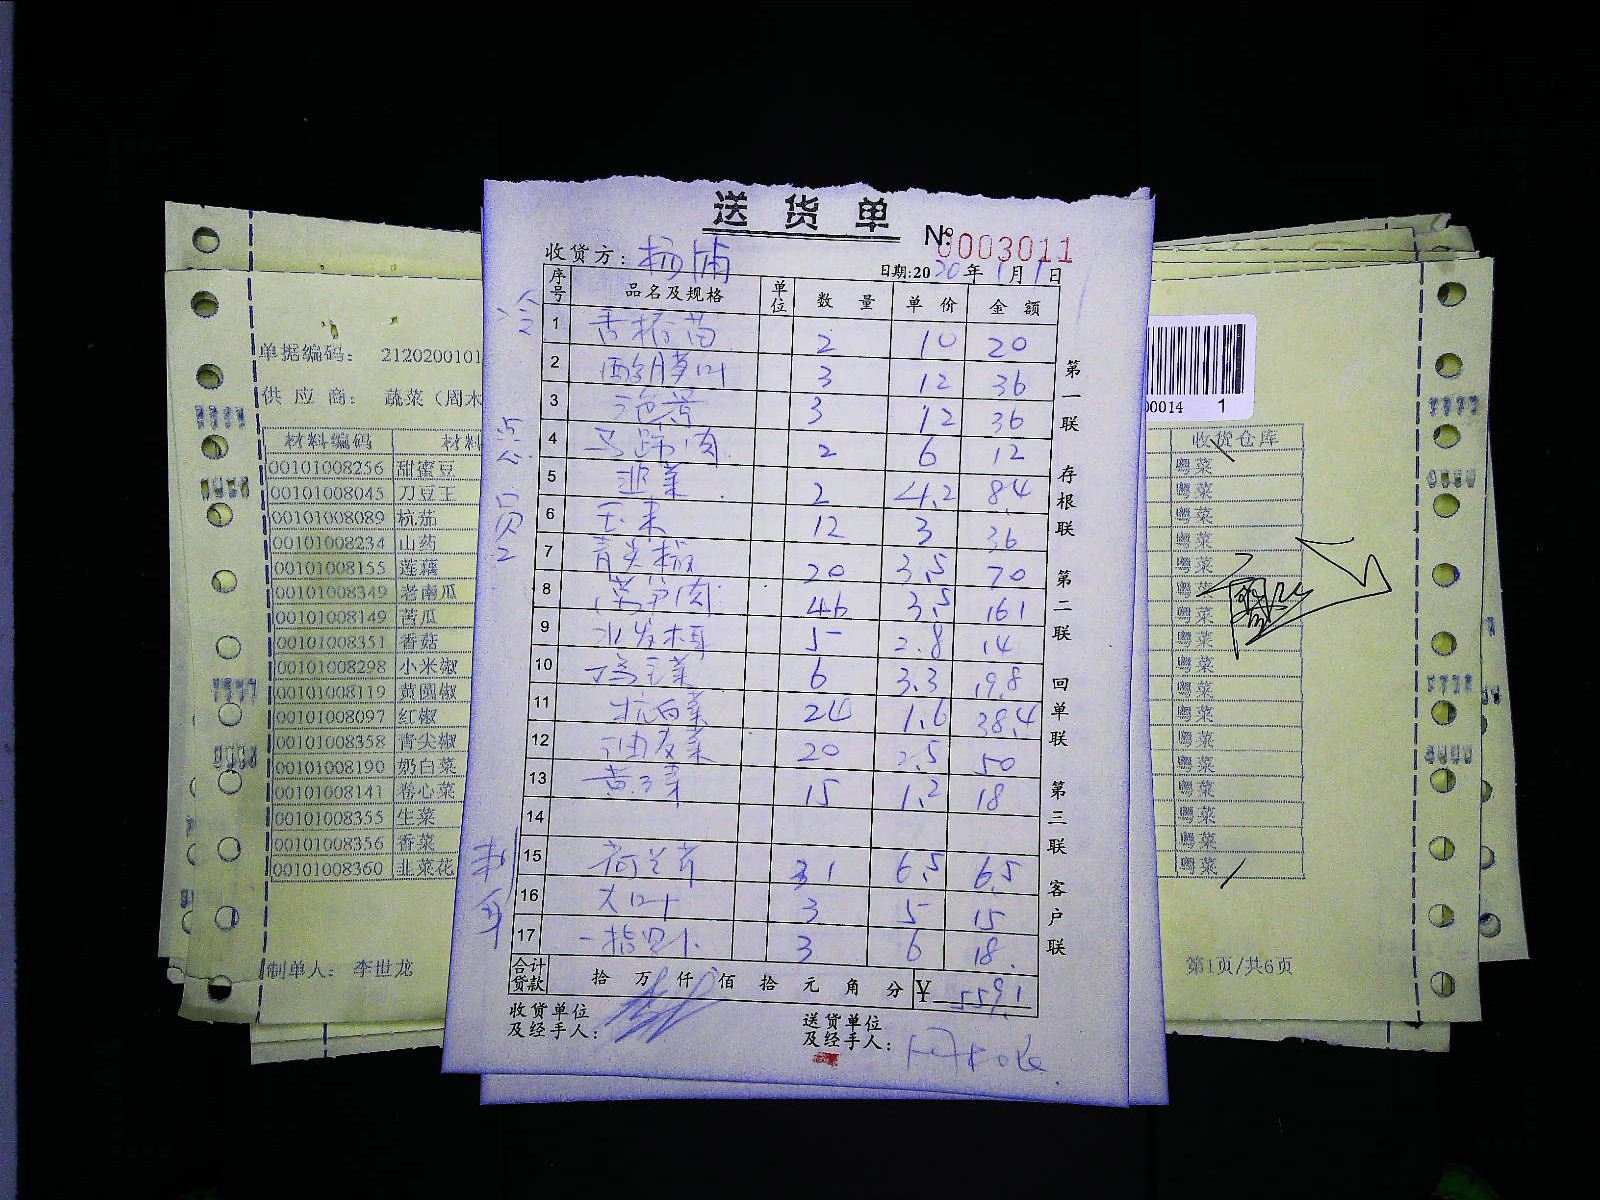 送货单
№ 0003011
收货方：杨浦
日期:2020年1月1日
序号 品名及规格 单位 数量 单价 金额
1 2 10 20
2 3 12 36
3 3 12 36
4 马蹄肉 2 6 12
5 韭菜 2 4.2 8.4
6 玉米 12 3 36
7 青尖椒 20 3.5 70
8 46 3.5 161
9 5 2.8 14
10 6 3.3 19.8
11 杭白菜 24 1.6 38.4
12 油麦菜 20 2.5 50
13 15 1.2 18
14
15 荷兰芹 1 6.5 6.5
16 3 5 15
17 3 6 18
合计货款 拾 万 仟 佰 拾 元 角 分 ¥ 559.1
收货单位及经手人：
送货单位及经手人：
第一联 存根联 第二联 回单联 第三联 客户联
单据编码： 2120200101
供应商： 蔬菜（周木
材料编码 材料
00101008256 甜蜜豆
00101008045 刀豆王
00101008089 杭茄
00101008234 山药
00101008155 莲藕
00101008349 老南瓜
00101008149 苦瓜
00101008351 香菇
00101008298 小米椒
00101008119 黄圆椒
00101008097 红椒
00101008358 青尖椒
00101008190 奶白菜
00101008141 卷心菜
00101008355 生菜
00101008356 香菜
00101008360 韭菜花
制单人： 李世龙
00014 1
收货仓库
粤菜
粤菜
粤菜
粤菜
粤菜
粤菜
粤菜
粤菜
粤菜
粤菜
粤菜
粤菜
粤菜
粤菜
粤菜
粤菜
粤菜
第1页/共6页